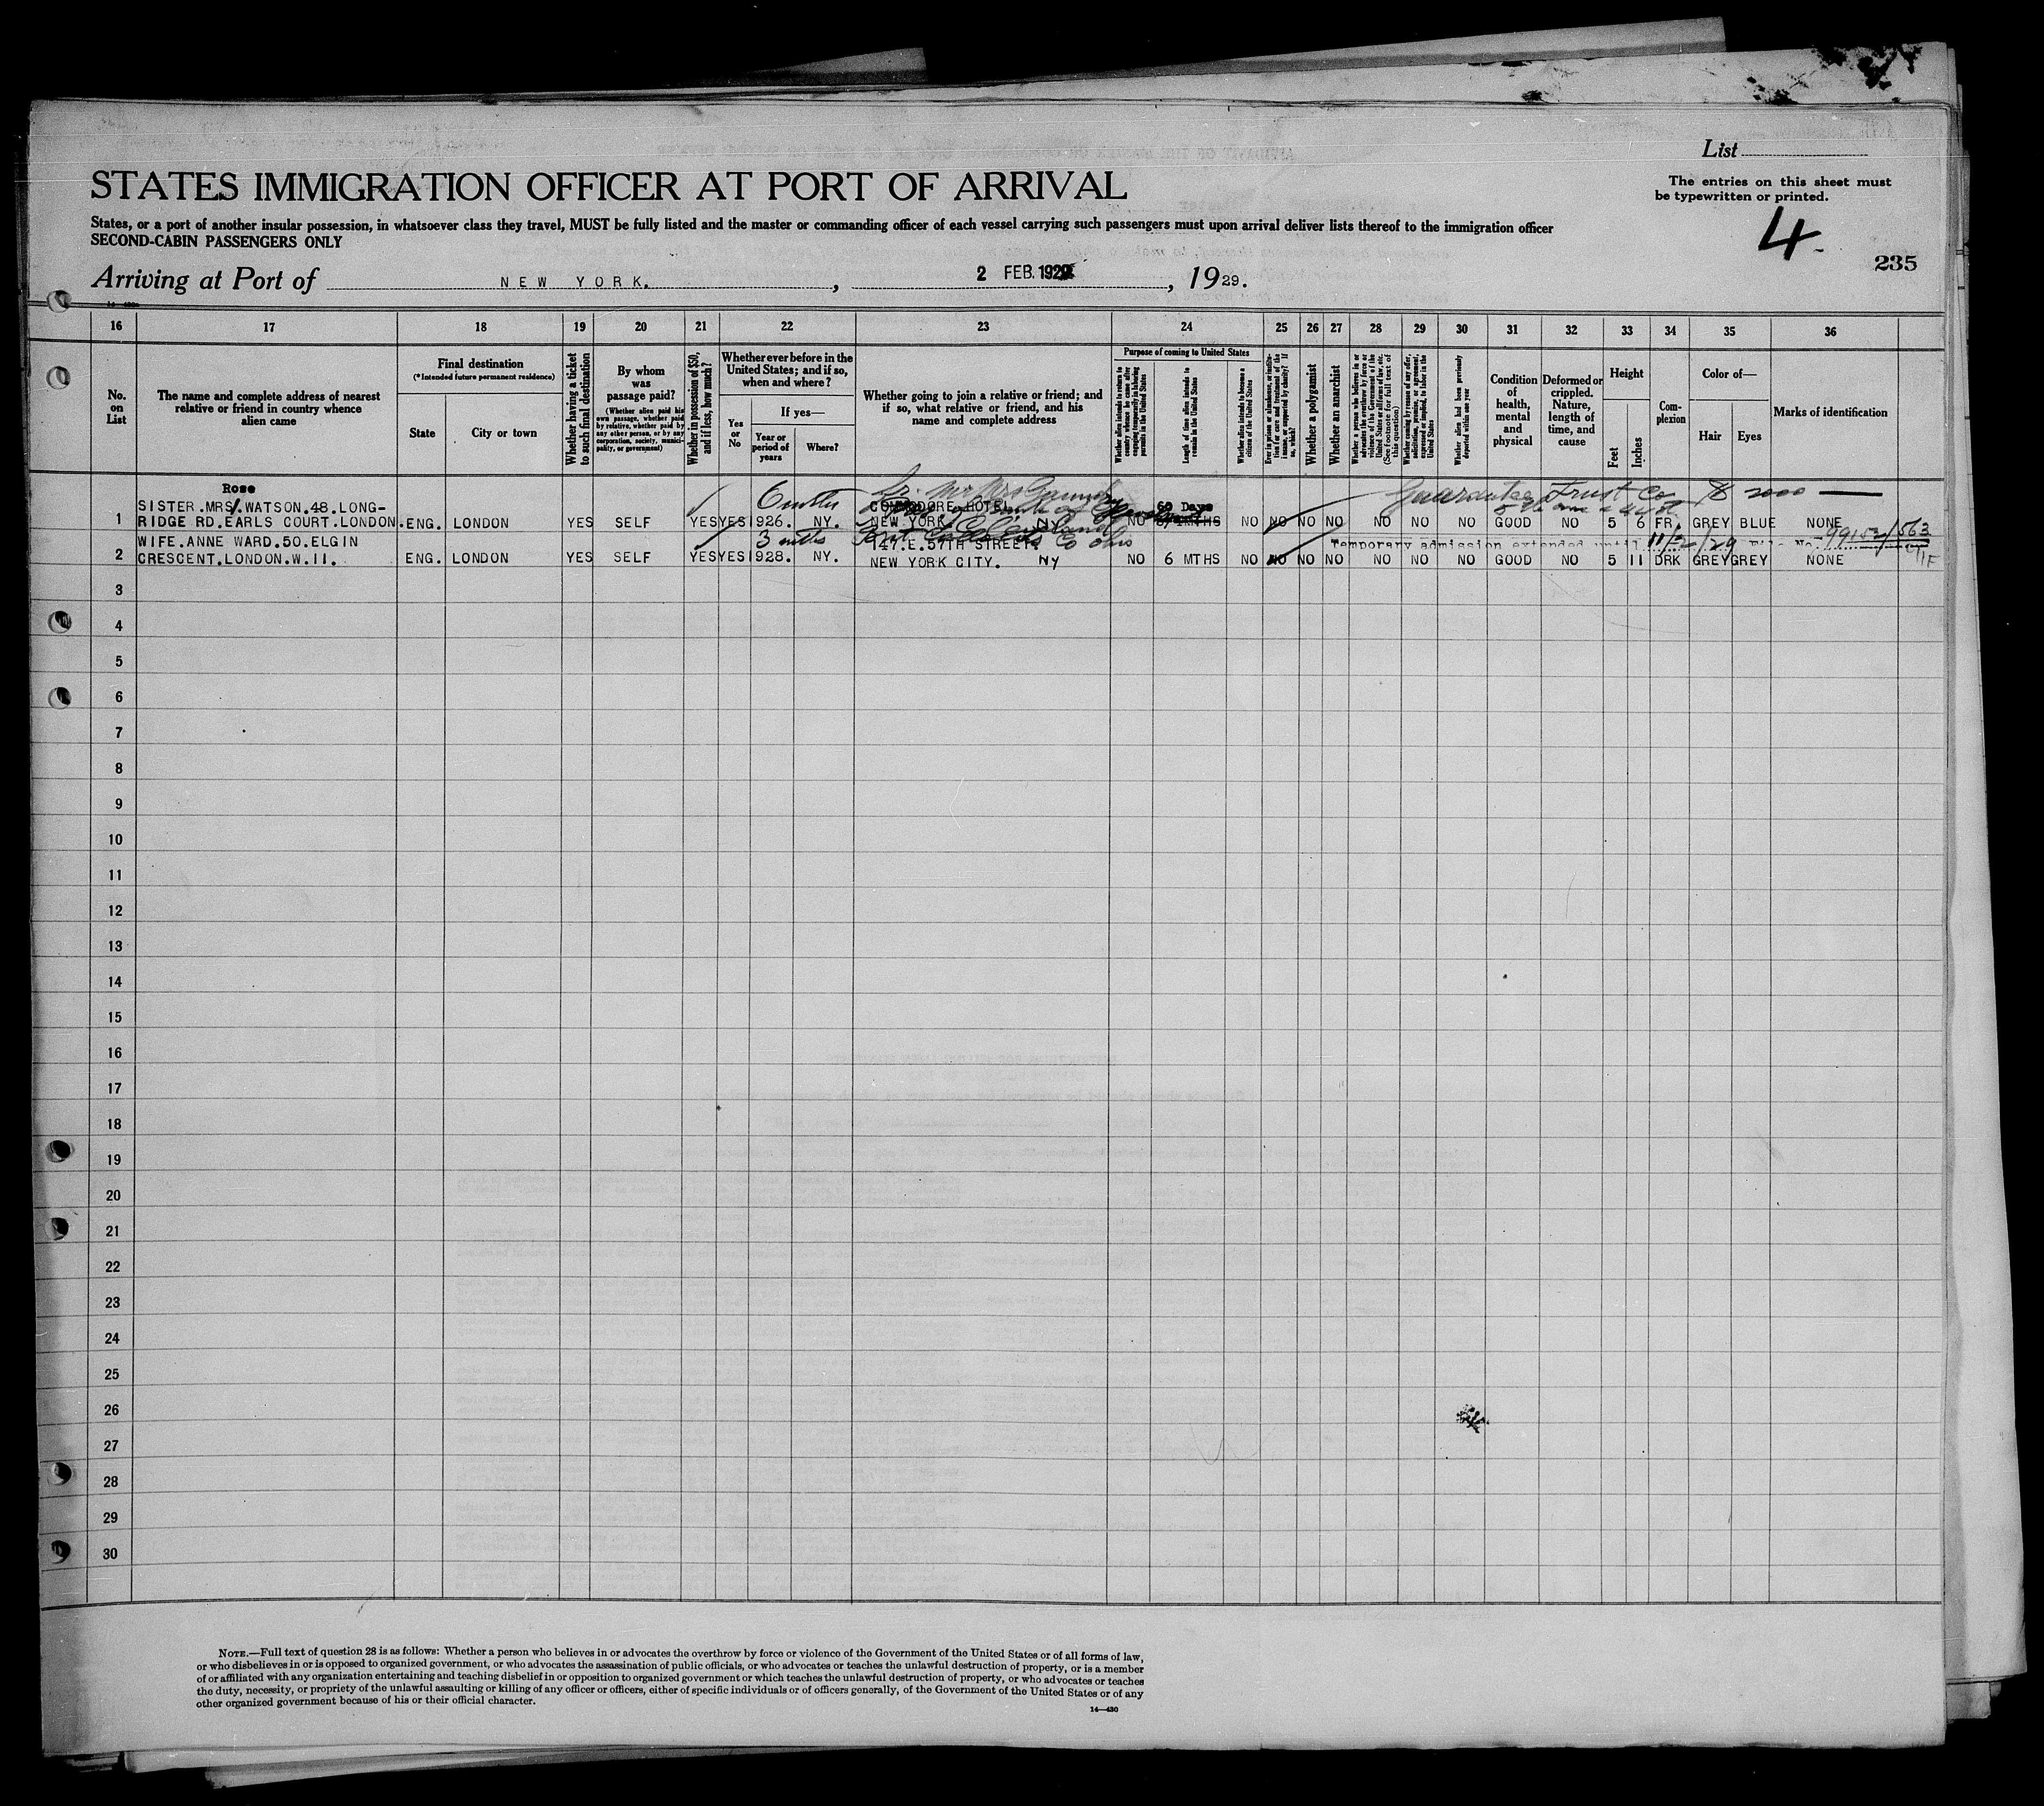 List
The entries on this sheet must
be typewritten or printed.
4
235
STATES IMMIGRATION OFFICER AT PORT OF ARRIVAL
States, or a port of another insular possession, in whatsoever class they travel, MUST be fully listed and the master or commanding officer of each vessel carrying such passengers must upon arrival deliver lists thereof to the immigration officer
SECOND-CABIN PASSENGERS ONLY
Arriving at Port of NEW YORK. , 2 FEB. 1929 , 1929.
16 17 18 19 20 21 22 23 24 25 26 27 28 29 30 31 32 33 34 35 36
No. on List
The name and complete address of nearest
relative or friend in country whence
alien came
Final destination
(*Intended future permanent residence)
State
City or town
Whether having a ticket
to such final destination
By whom
was
passage paid?
(Whether alien paid his
own passage, whether paid
by relative, whether paid by
any other person, or by any
corporation, society, munici-
pality, or government)
Whether in possession of $50,
and if less, how much?
Whether ever before in the
United States; and if so,
when and where?
Yes
or
No
If yes—
Year or
period of
years
Where?
Whether going to join a relative or friend; and
if so, what relative or friend, and his
name and complete address
Purpose of coming to United States
Whether alien intends to return to
country whence he came after
engaging temporarily in laboring
pursuits in the United States
Length of time alien intends to
remain in the United States
Whether alien intends to become a
citizen of the United States
Ever in prison or almshouse, or institu-
tion for care and treatment of the
insane, or supported by charity? If
so, which?
Whether a polygamist
Whether an anarchist
Whether a person who believes in or
advocates the overthrow by force or
violence of the Government of the
United States or all forms of law, etc.
(See footnote for full text of
this question)
Whether coming by reason of any offer,
solicitation, promise, or agreement,
expressed or implied, to labor in the
United States
Whether alien had been previously
deported within one year
Condition
of
health,
mental
and
physical
Deformed or
crippled.
Nature,
length of
time, and
cause
Height
Feet
Inches
Com-
plexion
Color of—
Hair
Eyes
Marks of identification
Rose 6 mths Guarantee Trust Co 2000
SISTER.MRS.WATSON.48.LONG- COMMODORE HOTEL, 60 Days
1 RIDGE RD.EARLS COURT.LONDON. ENG. LONDON YES SELF YES YES 1926. NY. NEW YORK. NY NO 6 MTHS NO NO NO NO NO NO NO GOOD NO 5 6 FR. GREY BLUE NONE
WIFE.ANNE WARD.50.ELGIN 3 mths 147.E.57TH STREET. Temporary admission extended until 11/2/29 File No. 99152/563
2 CRESCENT.LONDON.W.11. ENG. LONDON YES SELF YES YES 1928. NY. NEW YORK CITY. NY NO 6 MTHS NO NO NO NO NO NO NO GOOD NO 5 11 DRK GREY GREY NONE
3
4
5
6
7
8
9
10
11
12
13
14
15
16
17
18
19
20
21
22
23
24
25
26
27
28
29
30
NOTE.—Full text of question 28 is as follows: Whether a person who believes in or advocates the overthrow by force or violence of the Government of the United States or of all forms of law,
or who disbelieves in or is opposed to organized government, or who advocates the assassination of public officials, or who advocates or teaches the unlawful destruction of property, or is a member
of or affiliated with any organization entertaining and teaching disbelief in or opposition to organized government or which teaches the unlawful destruction of property, or who advocates or teaches
the duty, necessity, or propriety of the unlawful assaulting or killing of any officer or officers, either of specific individuals or of officers generally, of the Government of the United States or of any
other organized government because of his or their official character.
14—430